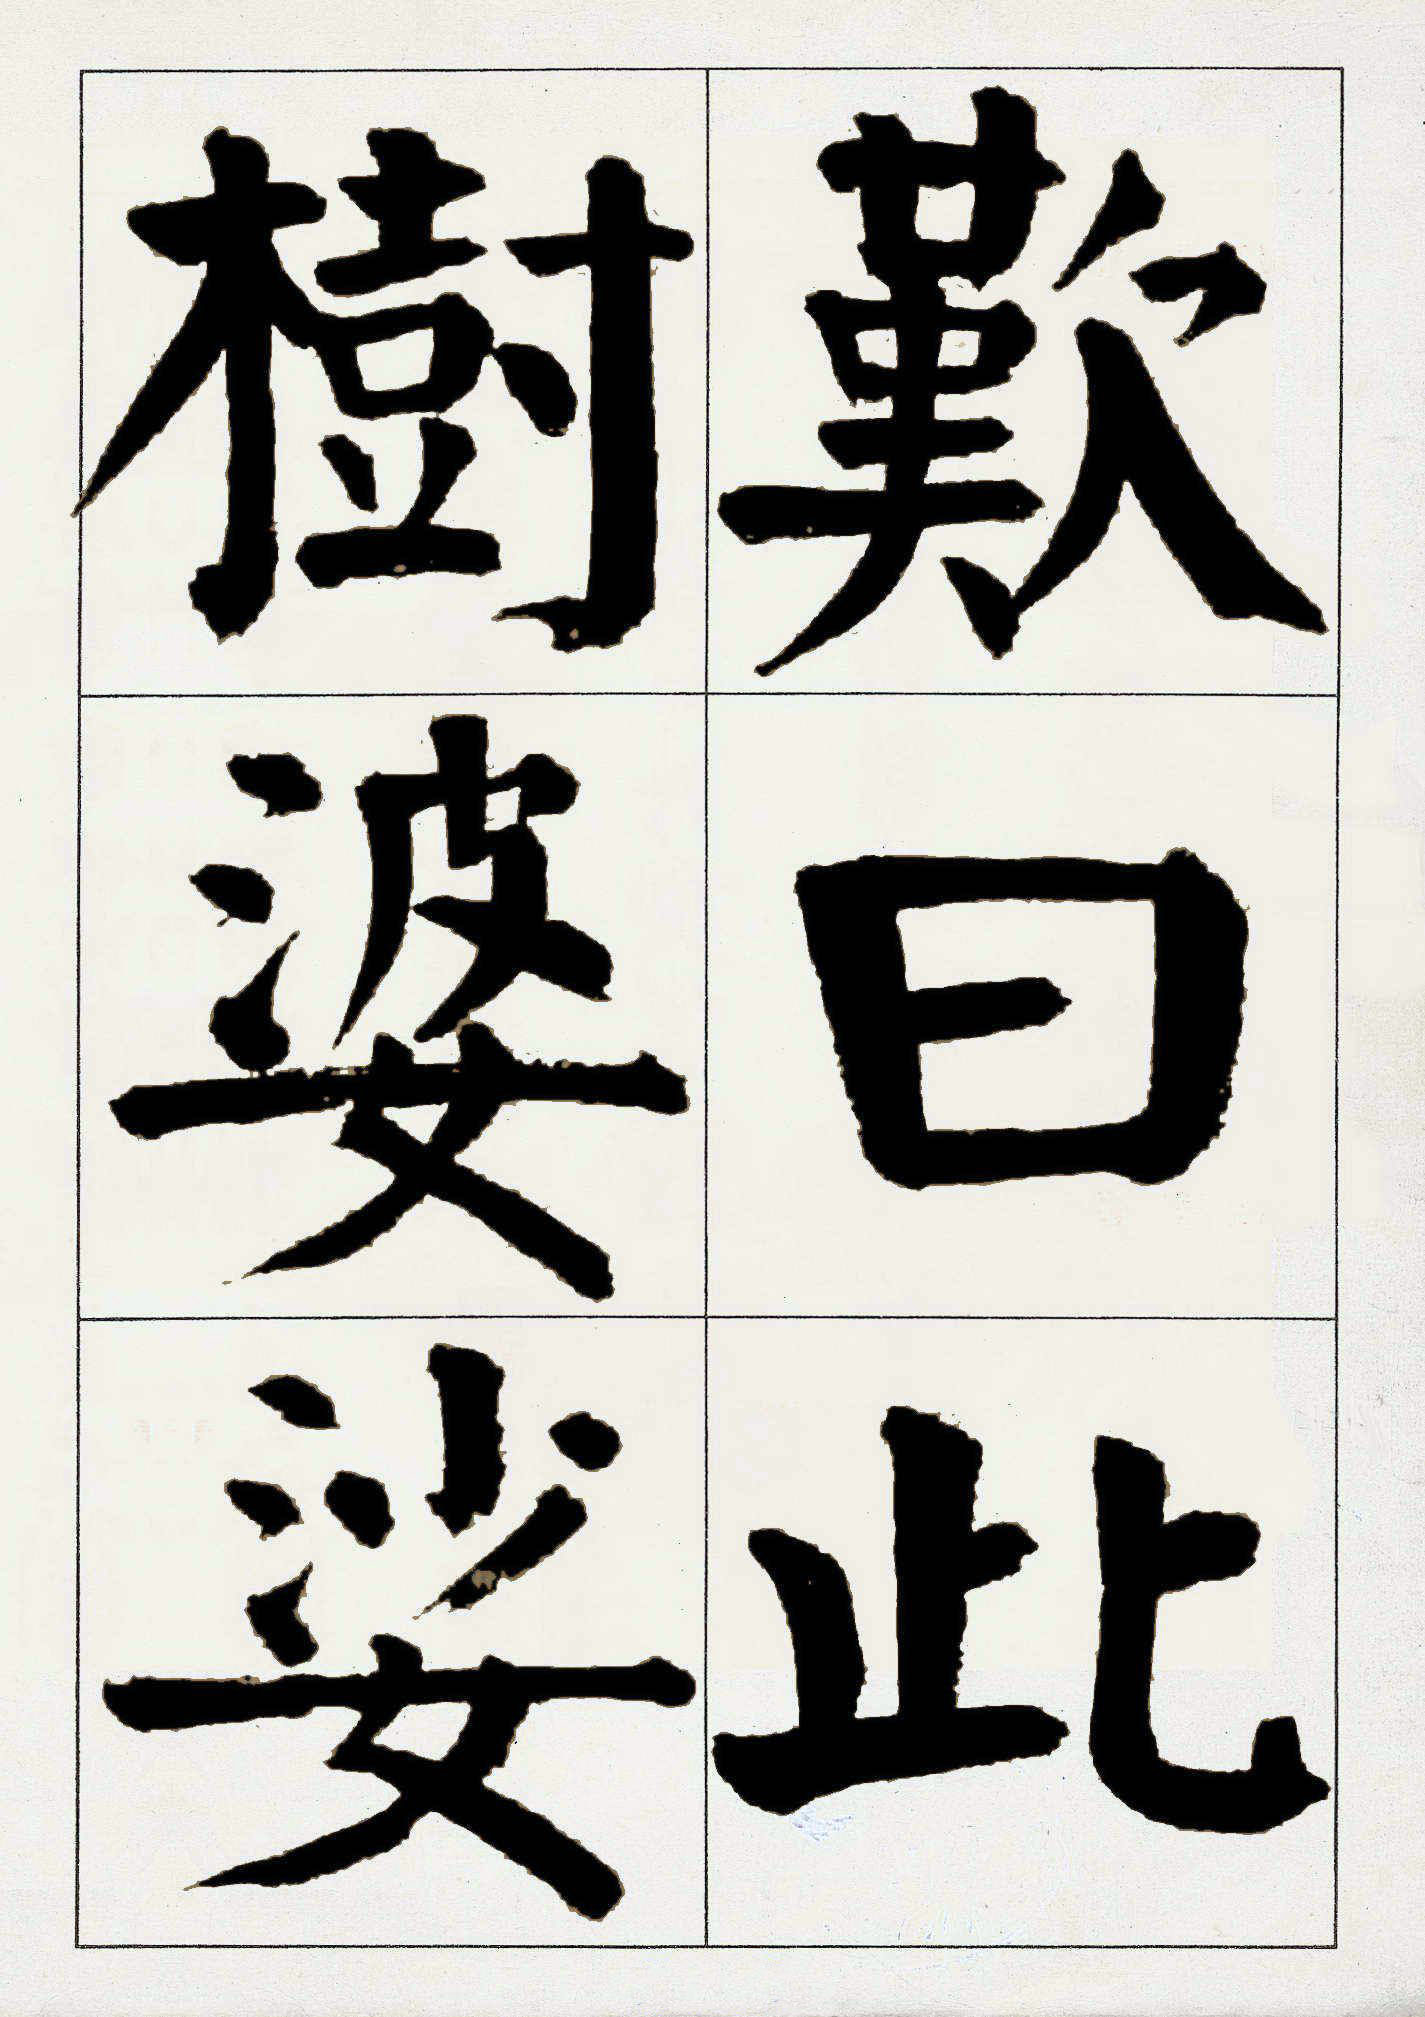 歎曰此
樹婆娑